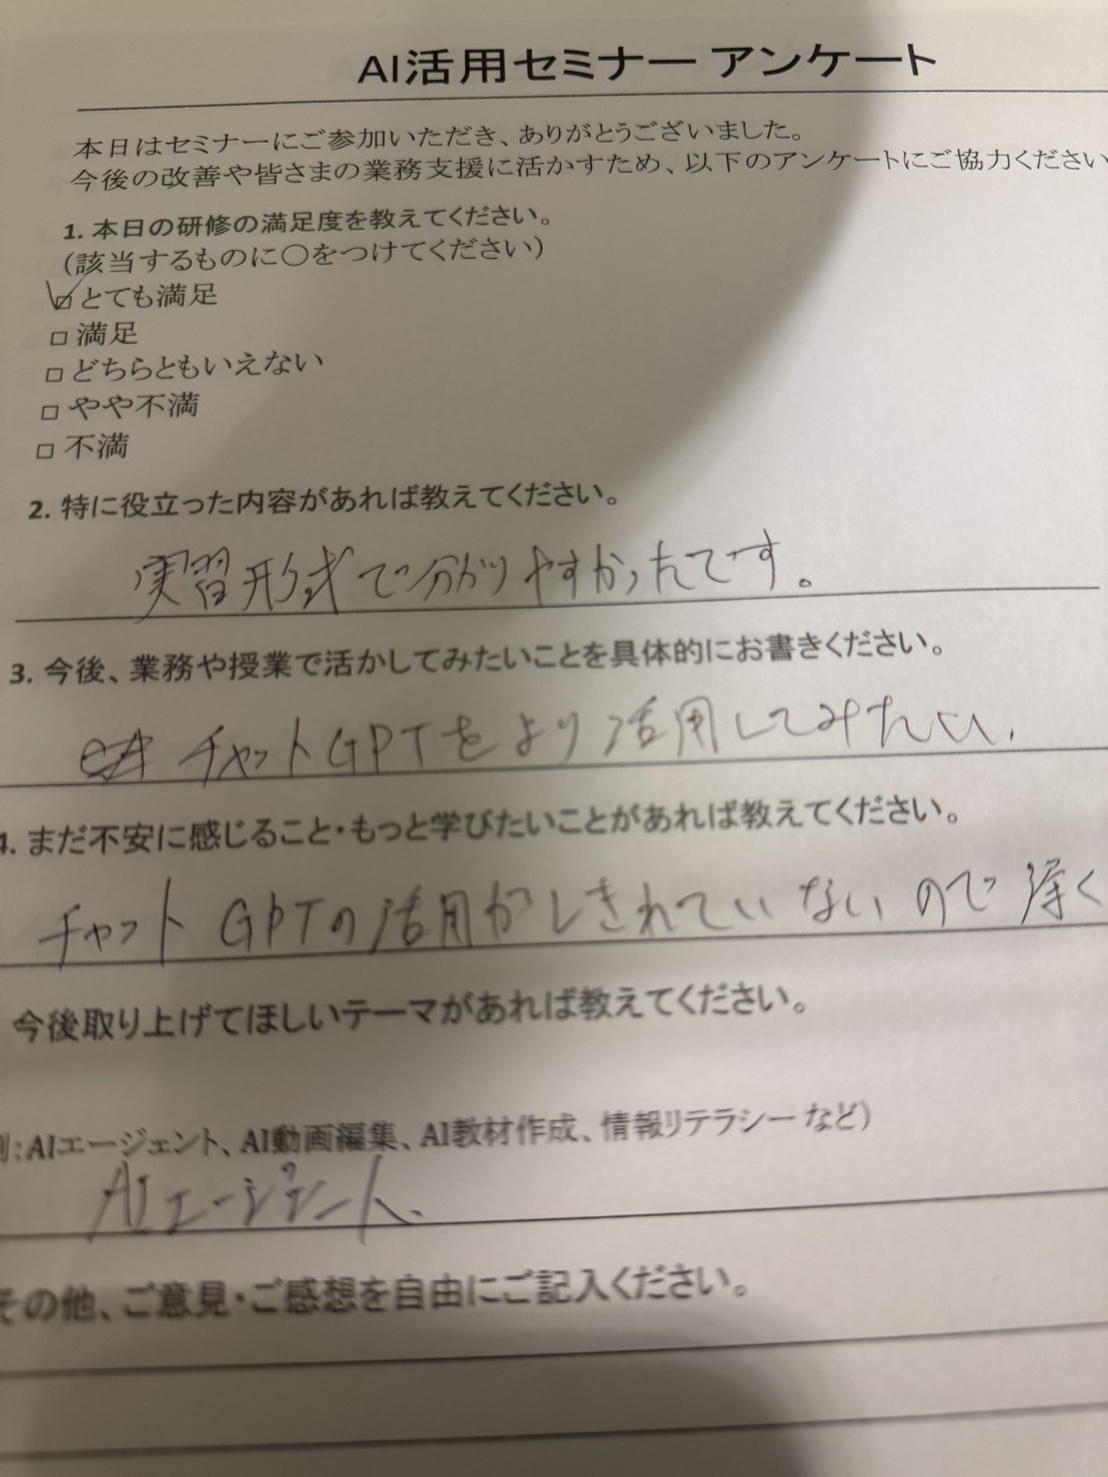 AI活用セミナー アンケート
本日はセミナーにご参加いただき、ありがとうございました。
今後の改善や皆さまの業務支援に活かすため、以下のアンケートにご協力ください
1. 本日の研修の満足度を教えてください。
（該当するものに〇をつけてください）
☑ とても満足
□ 満足
□ どちらともいえない
□ やや不満
□ 不満
2. 特に役立った内容があれば教えてください。
実習形式で分かりやすかったです。
3. 今後、業務や授業で活かしてみたいことを具体的にお書きください。
チャットGPTをより活用してみたい.
4. まだ不安に感じること・もっと学びたいことがあれば教えてください。
チャットGPTの活用がしきれていないので深く
今後取り上げてほしいテーマがあれば教えてください。
例：AIエージェント、AI動画編集、AI教材作成、情報リテラシー など）
AIエージェント.
その他、ご意見・ご感想を自由にご記入ください。